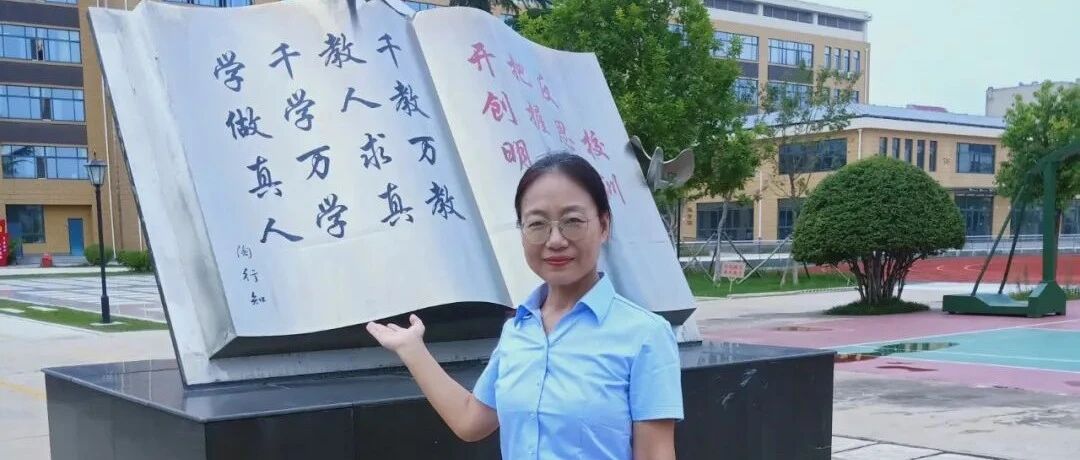 校
反思
把握
开创明
千教万教
教人求真
千学万学
学做真人
陶行知